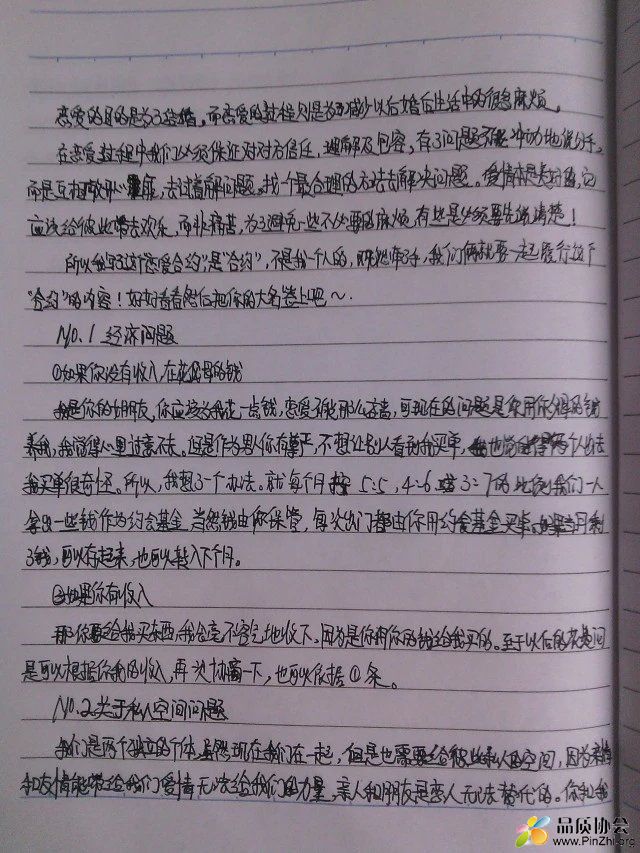 恋爱的目的是为了结婚,而恋爱的过程则是为了减少以后婚后生活中的很多麻烦。
在恋爱过程中我们必须保证对对方信任,理解及包容,有了问题不能冲动地说分手,
而是互相敞开心扉,去试着解问题,找一个最合理的方法去解决问题。爱情本是美好的,它
应该给彼此带去欢乐,而非痛苦,为了避免一些不必要的麻烦,有些是必须要先说清楚!
所以我写了这个恋爱合约,是"合约",不是我一个人的,既然牵了手,我们俩就要一起履行以下
"合约"的内容!好好看看然后把你的大名签上吧~
NO.1 经济问题
①如果你没有收入,在花父母的钱
我是你的女朋友,你应该为我花一点钱,恋爱不就那么方面,可现在的问题是你用你妈的钱
养我,我觉得心里过意不去。但是作为男人你有尊严,不想让别人看到我买单,我也觉得两个人出去
我买单很奇怪。所以,我想了一个办法。就每个月按5:5,4:6或3:7的比例我们一人
拿出一些钱作为约会基金,当然钱由你保管,每次出门都由你用约会基金买单。如果当月剩
了钱,可以存起来,也可以转入下个月。
②如果你有收入
那你要给我买东西,我会毫不客气地收下,因为是你用你的钱给我买的。至于以后的花费问
是可以根据你我的收入,再次协商一下,也可以依据①条。
NO.2 关于私人空间问题
我们是两个独立的个体,虽然现在我们在一起,但是也需要给彼此私人的空间,因为亲情
和友情能带给我们爱情无法给我们的力量,亲人和朋友是恋人无法替代的。你和我
品质协会
www.PinZhi.org